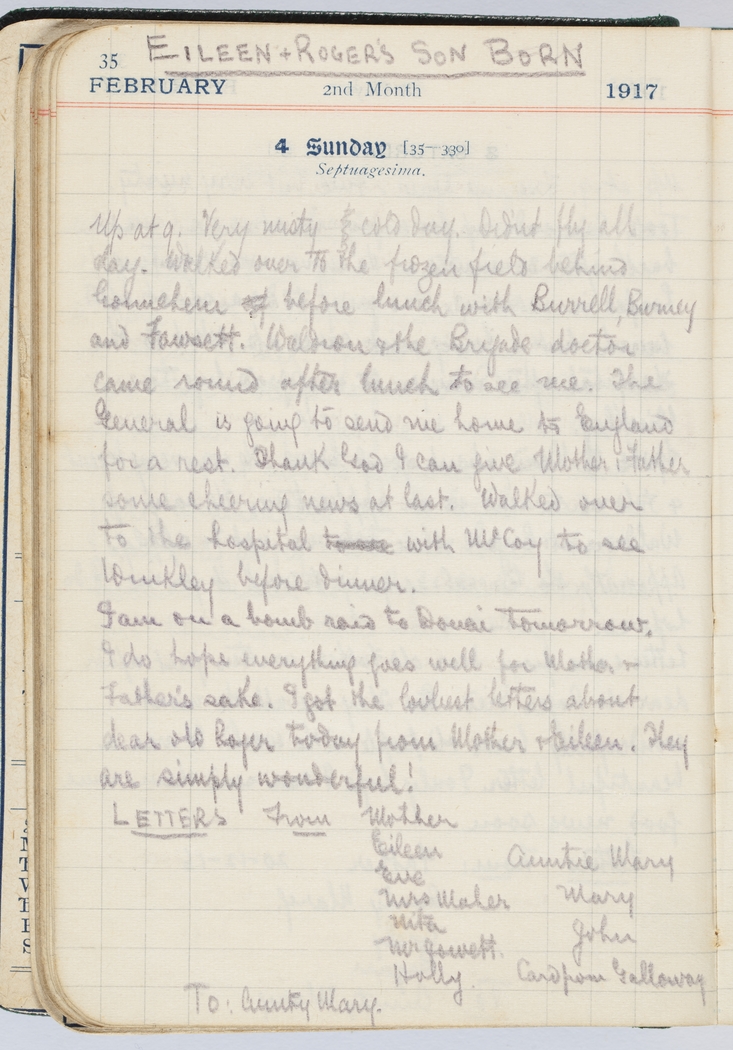 EILEEN + ROGER'S SON BORN
35
FEBRUARY 2nd Month 1917
4 Sunday [35-330]
Septuagesima.
Up at 9. Very misty & cold day. Didn't fly all
day. Walked over to the frozen field behind
Gonnehem before lunch with Burrell, Burney
and Fawsett. Waldron & the Brigade doctor
came round after lunch to see me. The
General is going to send me home to England
for a rest. Thank God I can give Mother & Father
some cheering news at last. Walked over
to the hospital with McCoy to see
Winkley before dinner.
I am on a bomb raid to Douai tomorrow.
I do hope everything goes well for Mother &
Father's sake. I got the loveliest letters about
dear old Roger today from Mother & Eileen. They
are simply wonderful!
LETTERS From Mother
Eileen Auntie Mary
Eve
Mrs Maher Mary
Nita John
Mr
Holly Card from Galloway
To: Aunty Mary.